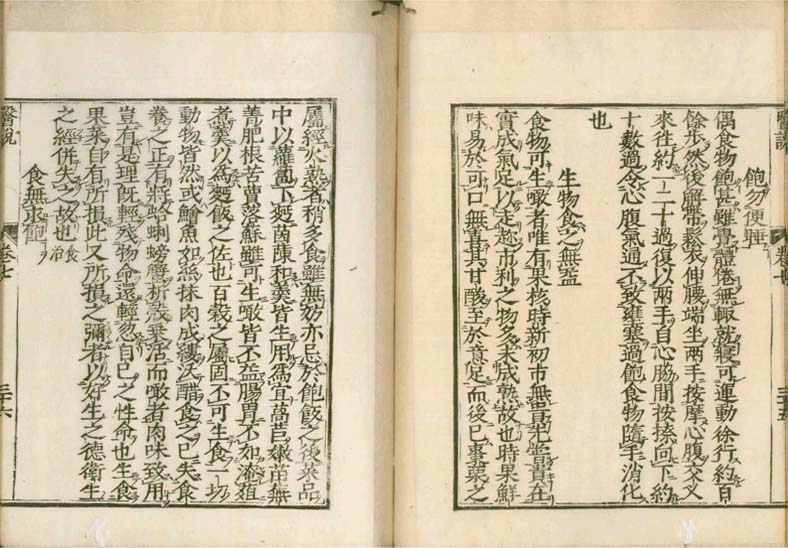 飽勿便睡
偶食物飽甚雖覺體倦無輒就寢可運動徐行約百
餘步然後解帶鬆衣伸腰端坐兩手按摩心腹交叉
來往約一二十過復以兩手自心脇間按捺向下約
十數過令心腹氣通不致壅塞過飽食物隨手消化
也
生物食之無益
食物可生噉者唯有果核時新初市無貴先嘗貴在
實成氣足以走趍市利之物多未成熟故也時果鮮
味易於可口無喜其甘酸至於意足而後已棗菓之
醫說
卷七
三十五
屬經火熟者稍多食雖無妨亦忌於飽飯之後菜品
中以蘿蔔下麪茵陳和羹皆生用爲宜萵苣嫩苗蕪
菁肥根苦蕒落蘇雖可生噉皆不益腸胃不如淹殖
煮羹以爲麪飯之佐也百穀之屬固不可生食一切
動物皆然或鱠魚如絲抹肉成縷沃醋食之已失食
養之正有將蛤蜊螃蠏析殼棄活而噉者肉味致用
豈有是理旣輕殘物命還輕忽自己之性命也生食
果菜自有所損此又所損之彌者以好生之德衛生
之經併失之故也 食治
食無求飽
醫說
卷七
三十六